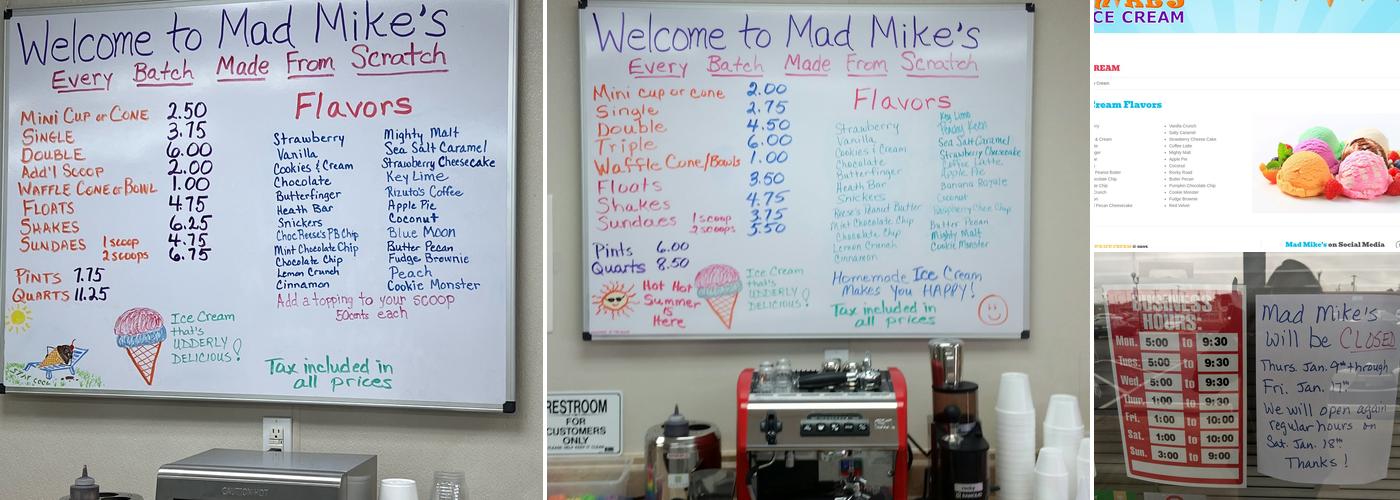 Welcome to Mad Mike's
Every Batch Made From Scratch
Mini Cup or Cone 2.50
Single 3.75
Double 6.00
Add'l Scoop 2.00
Waffle Cone or Bowl 1.00
Floats 4.75
Shakes 6.25
Sundaes 1 scoop 4.75
2 scoops 6.75
Pints 7.75
Quarts 11.25
Flavors
Strawberry
Vanilla
Cookies & Cream
Chocolate
Butterfinger
Heath Bar
Snickers
Choc Reese's PB Chip
Mint Chocolate Chip
Chocolate Chip
Lemon Crunch
Cinnamon
Mighty Malt
Sea Salt Caramel
Strawberry Cheesecake
Key Lime
Rizuto's Coffee
Apple Pie
Coconut
Blue Moon
Butter Pecan
Fudge Brownie
Peach
Cookie Monster
Add a topping to your scoop
50cents each
Ice Cream
that's
UDDERLY
DELICIOUS!
Tax included in
all prices
CAUTION HOT
Welcome to Mad Mike's
Every Batch Made From Scratch
Mini cup or cone 2.00
Single 2.75
Double 4.50
Triple 6.00
Waffle Cone/Bowls 1.00
Floats 3.50
Shakes 4.75
Sundaes 1 scoop 3.75
2 scoops 5.50
Pints 6.00
Quarts 8.50
Flavors
Strawberry
Vanilla
Cookies & Cream
Chocolate
Butterfinger
Heath Bar
Snickers
Reese's Peanut Butter
Mint Chocolate Chip
Chocolate Chip
Lemon Crunch
Cinnamon
Key Lime
Sea Salt Caramel
Strawberry Cheesecake
Coffee Latte
Apple Pie
Banana Royale
Coconut
Raspberry Choc Chip
Butter Pecan
Mighty Malt
Cookie Monster
Hot Hot
Summer
is
Here
Ice Cream
that's
UDDERLY
DELICIOUS!
Homemade Ice Cream
Makes You HAPPY!
Tax included in
all prices
RESTROOM
FOR
CUSTOMERS
ONLY
CE CREAM
REAM
Cream.
ream Flavors
& Cream
Peanut Butter
ocolate Chip
te Chip
Crunch
Pecan Cheesecake
Vanilla Crunch
Salty Caramel
Strawberry Cheese Cake
Coffee Latte
Mighty Malt
Apple Pie
Coconut
Rocky Road
Butter Pecan
Pumpkin Chocolate Chip
Cookie Monster
Fudge Brownie
Red Velvet
Mad Mike's on Social Media
BUSINESS
HOURS:
Mon. 5:00 to 9:30
Tues. 5:00 to 9:30
Wed. 5:00 to 9:30
Thur. 1:00 to 9:30
Fri. 1:00 to 10:00
Sat. 1:00 to 10:00
Sun. 3:00 to 9:00
Mad Mike's
will be CLOSED
Thurs. Jan. 9th through
Fri. Jan. 17th
We will open again
regular hours on
Sat. Jan. 18th
Thanks!